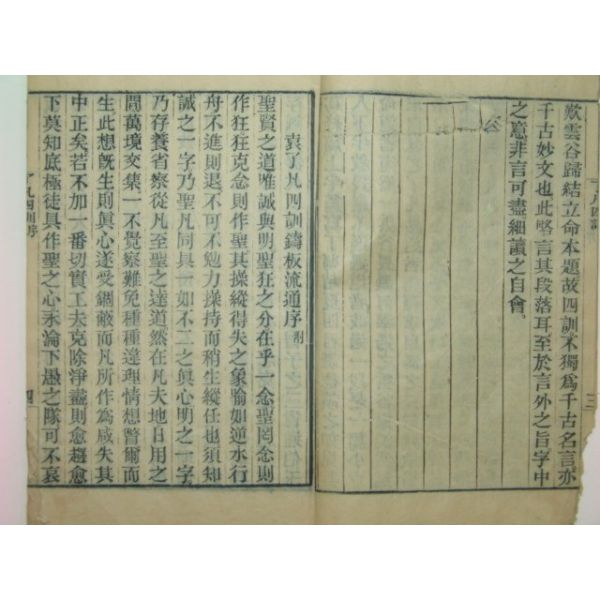 歟雲谷歸結立命本題故四訓不獨爲千古名言亦
千古妙文也此略言其段落耳至於言外之旨字中
之意非言可盡細讀之自會
三
袁了凡四訓鑄板流通序 附
聖賢之道唯誠與明聖狂之分在乎一念聖罔念則
作狂狂克念則作聖其操縱得失之象喻如逆水行
舟不進則退不可不勉力操持而稍生縱任也須知
誠之一字乃聖凡同具一如不二之眞心明之一字
乃存養省察從凡至聖之達道然在凡夫地日用之
間萬境交集一不覺察難免種種違理情想瞥爾而
生此想旣生則眞心遂受錮蔽而凡所作爲咸失其
中正矣若不加一番切實工夫克除淨盡則愈趨愈
下莫知底極徒具作聖之心永淪下愚之隊可不哀
了凡四訓序
四